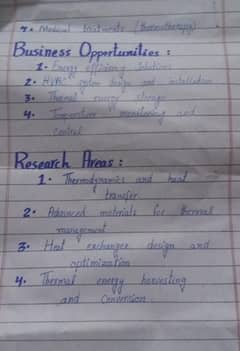 7. Medical treatments (thermotherapy).
Business Opportunities :
1. Energy efficiency solutions
2. HVAC system design and installation
3. Thermal energy storage
4. Temperature monitoring and
control
Research Areas :
1. Thermodynamics and heat
transfer
2. Advanced materials for thermal
management
3. Heat exchanger design and
optimization
4. Thermal energy harvesting
and Conversion